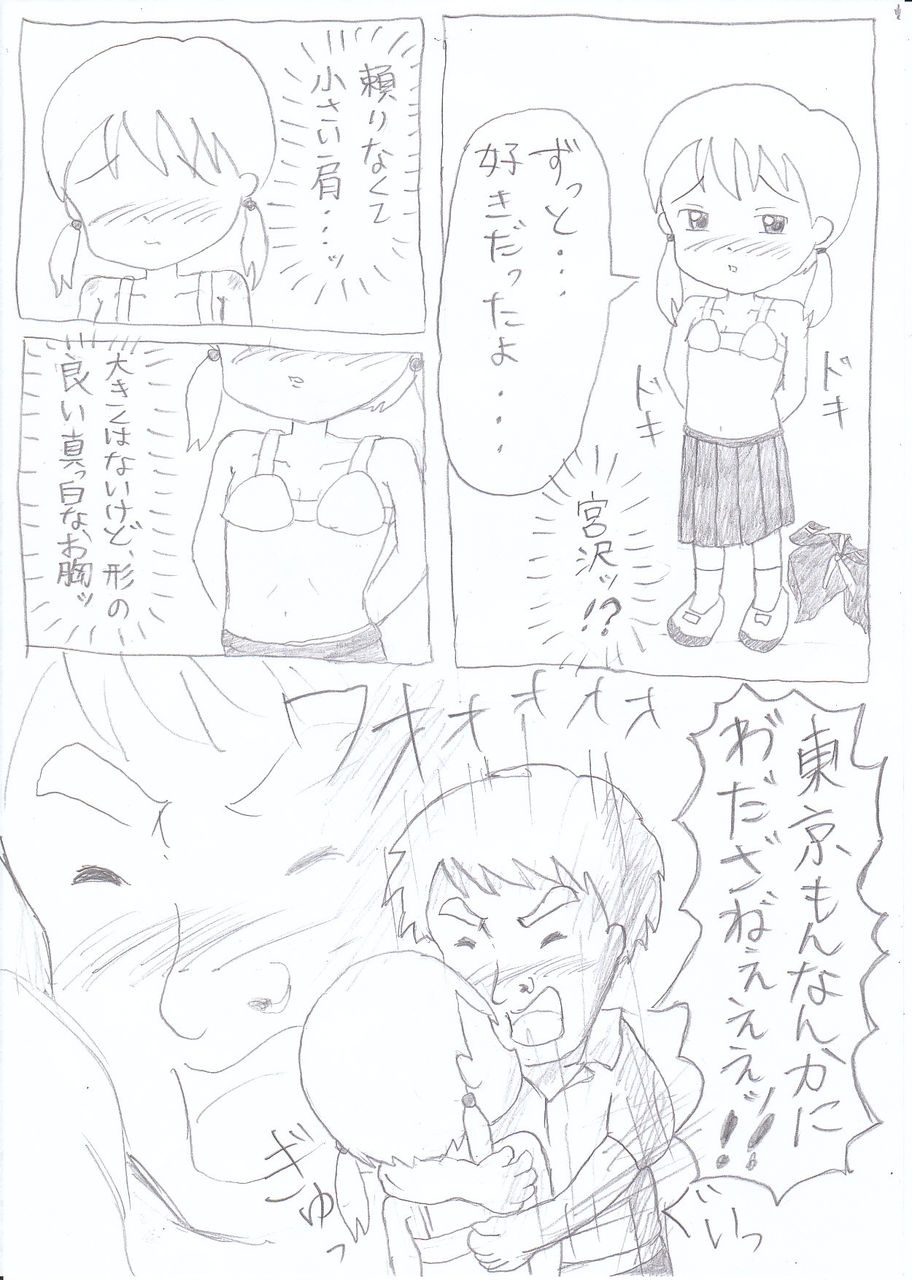 ずっと・・・
好きだったよ・・・・
ドキ
ドキ
宮沢ッ!?
頼りなくて
小さい肩・・・・ッ
大きくはないけど、形の
良い真っ白なお胸ッ
東京もんなんかに
わだざねぇぇぇッ!!
ワオオオオオ
ぎゅっ
ぐいっ